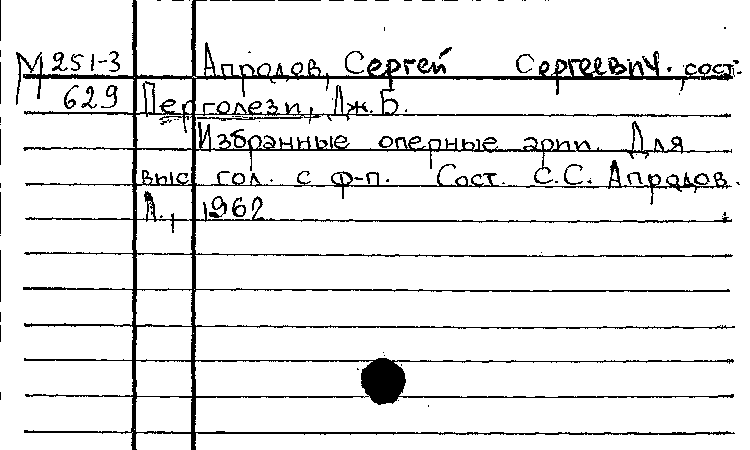 М 251-3 Апродов, Сергей Сергеевич. сост.
629 Перголези, Дж.Б.
Избранные оперные арии. Для
выс гол. с ф-п. Сост. С.С. Апродов.
Л., 1962